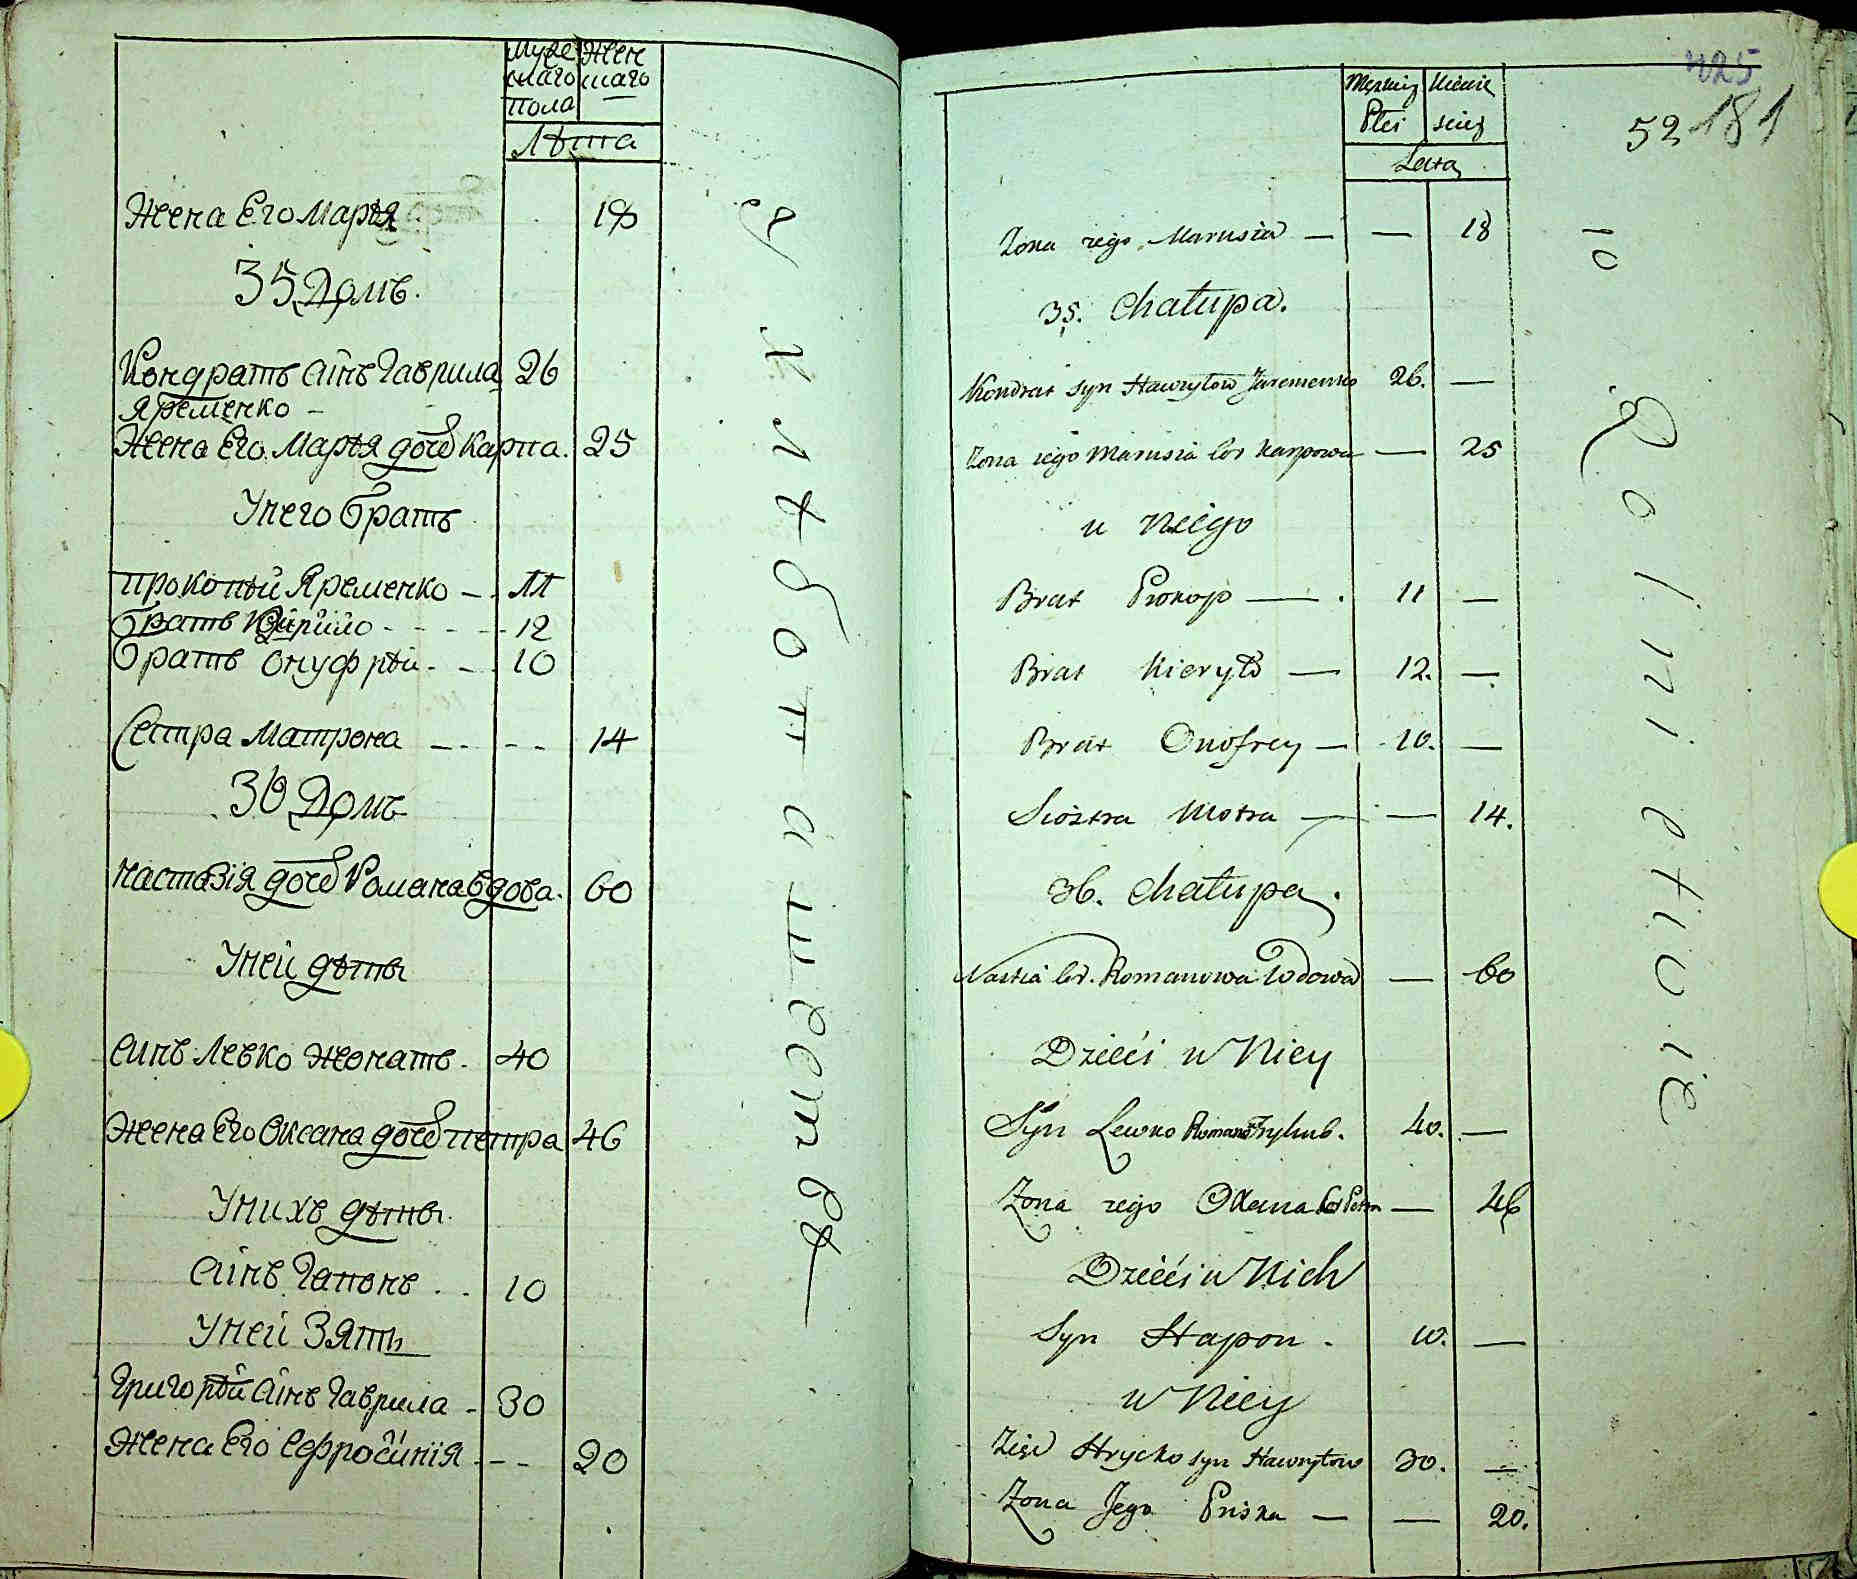 Муже Жен
скаго скаго
пола
Лѣта
Жена Его Марѣя 18
35 Домъ.
Кондратъ Синъ Гаврила 26
Яременко –
Жена Его Марѣя дочь Карпа. 25
Унего братъ
Прокопѣй Яременко – 11
братъ Кирило - - - - 12
братъ Онуфрѣй - - 10
Сестра Матрона – - - - 14
36 Домъ
Настазія дочь Романа вдова. 60
Уней дѣты
Синъ Левко Жонатъ. 40
Жена Его Оксана дочь петра 46
Унихъ дѣты.
Синъ Гапонъ . . 10
Уней Зять
Григорѣй Синъ Гаврила - 30
Жена Его Ефросинія - - - 20
Męskiey
Płci
Lata
425
52 181
Zona iego Marusia — — 18
35. Chałupa.
Kondrat syn Hawryłow Jaremenko 26. —
Zona iego Marusia cor Karpowa — 25
u Niego
Brat Prokop — 11 —
Brat Kieryło — 12. —
Brat Onofrey — 10. —
Siostra Motra — — 14.
36. Chałupa.
Nastia cor. Romanowa Wdowa — 60
Dzieći u Niey
Syn Lewko 40. —
Zona iego Oxana cor Petra — 46
Dzieći u Nich
Syn Hapon - 10. —
u Niey
Zięć Hrycko syn Hawryłow 30. —
Zona Jego Priska — — 20.
10